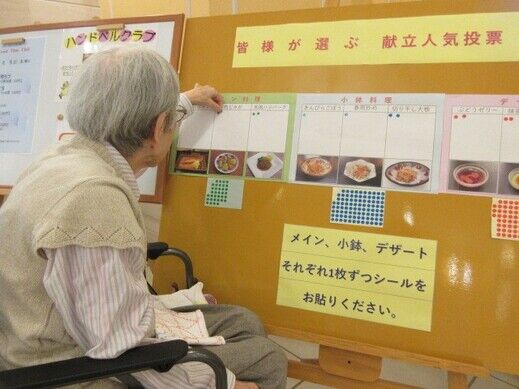 ハンドベルクラブ
皆様が選ぶ 献立人気投票
イン料理
小鉢料理
きんぴらごぼう
春雨炒め
切り干し大根
ぶどうゼリー
メイン、小鉢、デザート
それぞれ1枚ずつシールを
お貼りください。